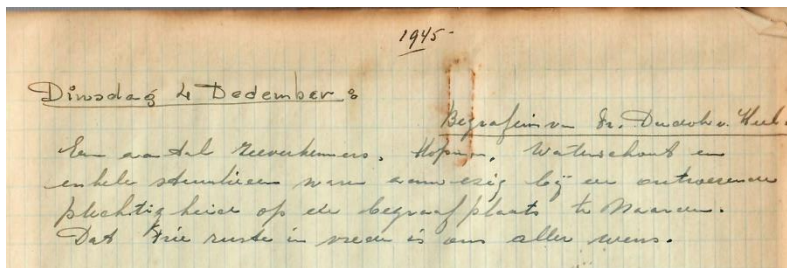 1945-
Dinsdag 4 Dedember:
Begrafenis van Dr. Dudok v. Heel
Een aantal zeeverkenners, Hopman, Waterschout en
enkele stuurlieden waren aanwezig bij een ontroerende
plechtigheid op de begraafplaats te Naarden.
Dat ruste in vrede is ons aller wens.